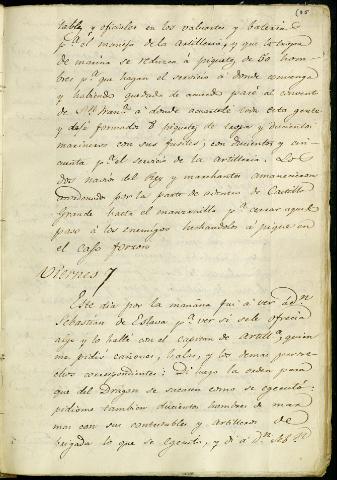 (85
tables y oficiales en los valuartes y bateria
p.ª el manejo de la Artilleria, y que la tropa
de marina se reduxera à piquetes de 50 hom-
bres p.ª que hagan el servicio à donde convenga
y habiendo quedado de acuerdo pasé al convento
de S.n Fran.co à donde aquartelé toda esta gente
y dexé formados 8 piquetes de tropa y ducientos
marineros con sus fusiles; con ducientos y cin-
cuenta p.ª el servicio de la Artilleria. Los
dos navios del Rey y marchantes amanecieron
por la parte de adentro de Castillo
Grande hasta el manzanillo p.ª cerrar aquel
paso à los enemigos hechandolos à pique en
el caso forzoso
Viernes 7
Este dia por la mañana fui à ver a D.n
Sebastian de Eslava p.ª ver si sele ofrecia
algo y lo hallé con el capitan de Artill.ª, quien
me pidió cañones, balas, y los demas pertre-
chos correspondientes: Di luego la orden para
que del Dragon se sacasen como se egecutó:
pidiome tambien ducientos hombres de mar
mas con sus condestables y Artilleros de
brigada lo que se egecutó, y di à D.n Seb.n